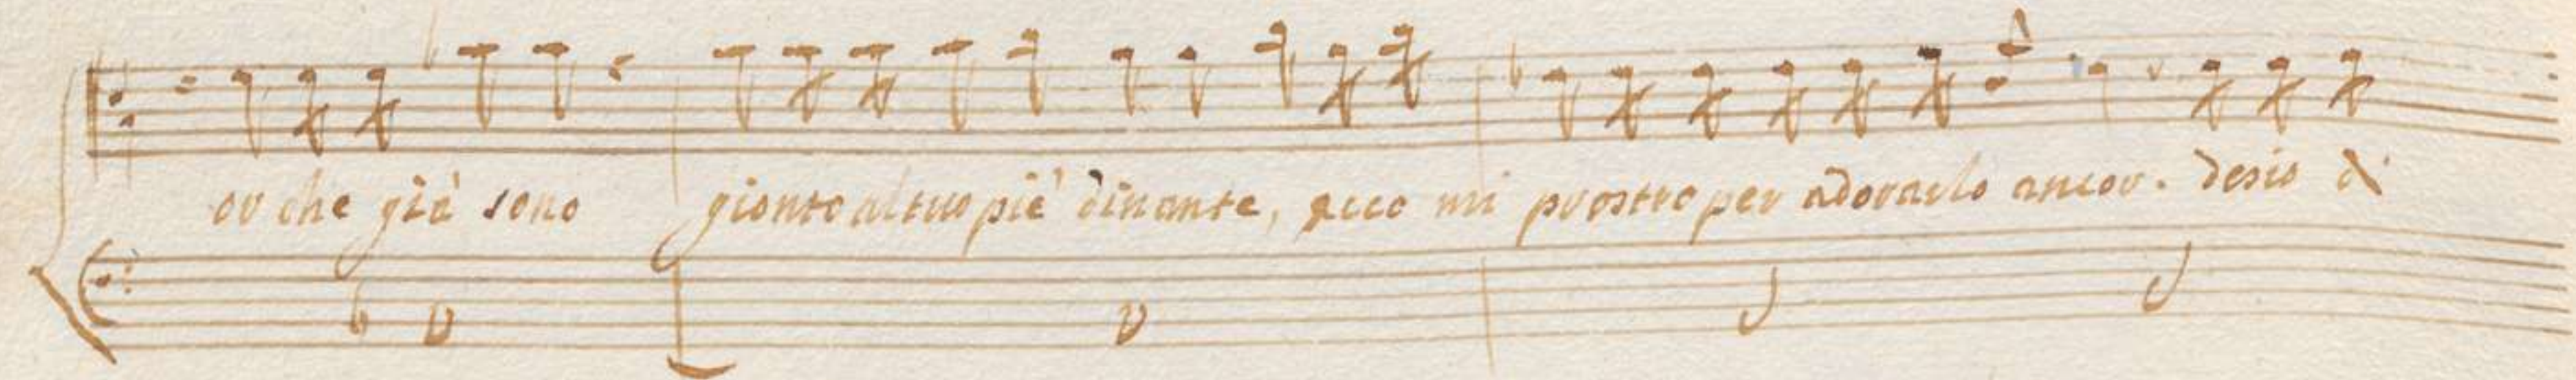 or che già sono gionto al tuo piè dinante, ecco mi prostro per adorarlo ancor. desio di